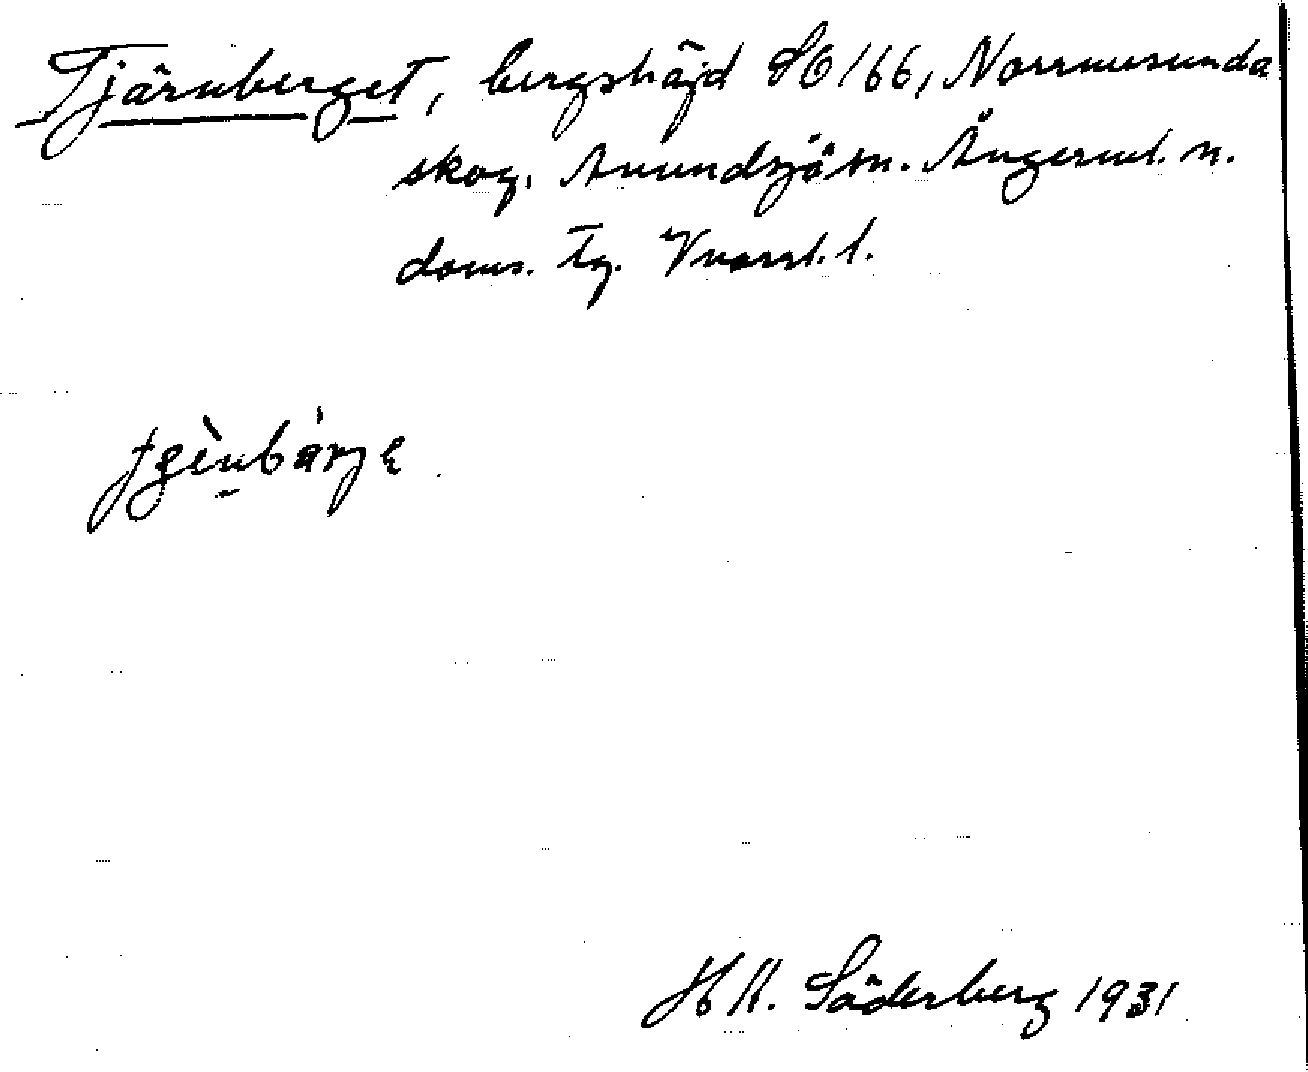 Tjärnberget, bergshöjd S6/66, Norrmesunda
skog. Anundsjö sn. Ångerml. n.
doms. tg. Vnorrl. l.
H A. Söderberg 1931